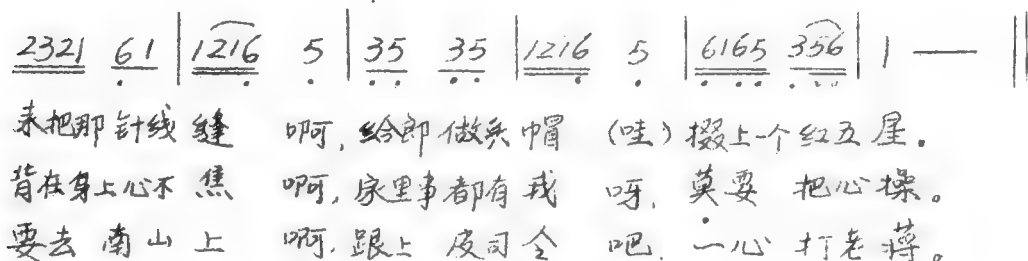 2321 61 | 1216 5 | 35 35 | 1216 5 | 6165 356 | 1 — ‖
来把那针线缝 啊, 给郎做头帽 (哇) 掇上一个红五星。
背在身上心不焦 啊, 家里事都有我 呀, 莫要 把心操。
要去南山上 啊, 跟上 皮司令 吧, 一心 打老蒋。